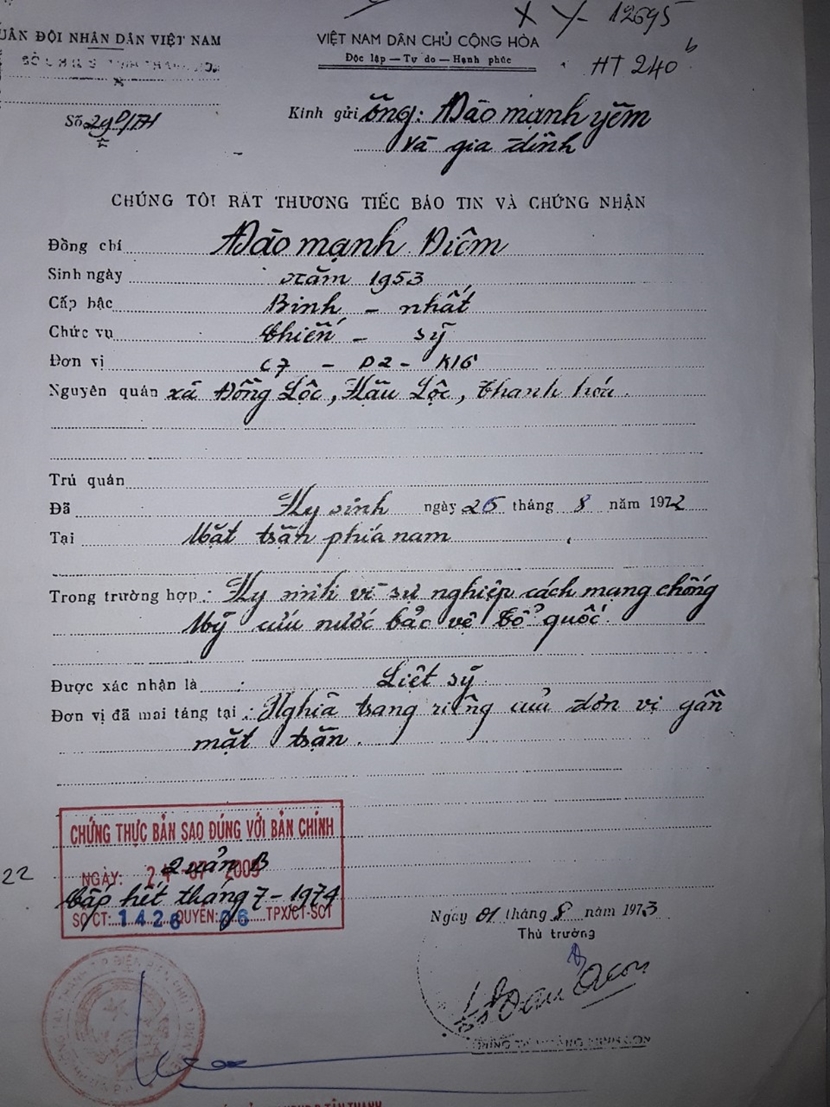 XY- 12695
QUÂN ĐỘI NHÂN DÂN VIỆT NAM
VIỆT NAM DÂN CHỦ CỘNG HÒA
Độc lập — Tự do — Hạnh phúc
HT 240b
Số
Kính gửi ông: Đào mạnh yêm
và gia đình
CHÚNG TÔI RẤT THƯƠNG TIẾC BÁO TIN VÀ CHỨNG NHẬN
Đồng chí Đào mạnh Diêm
Sinh ngày năm 1953
Cấp bậc Binh - nhất
Chức vụ Chiến - sỹ
Đơn vị C7 - D2 - K16
Nguyên quán xã Đồng Lộc, Hậu Lộc, Thanh hóa.
Trú quán
Đã Hy sinh ngày 25 tháng 8 năm 1972
Tại Mặt trận phía nam
Trong trường hợp: Hy sinh vì sự nghiệp cách mạng chống
Mỹ cứu nước bảo vệ tổ quốc.
Được xác nhận là: Liệt sỹ
Đơn vị đã mai táng tại: Nghĩa trang riêng của đơn vị gần
mặt trận.
CHỨNG THỰC BẢN SAO ĐÚNG VỚI BẢN CHÍNH
22
NGÀY: 07
Cấp hết tháng 7-1974
SỐ CT: 1426 QUYỂN: 06 TPX/CT-SCT
Ngày 01 tháng 8 năm 1973
Thủ trưởng
TÂN THANH